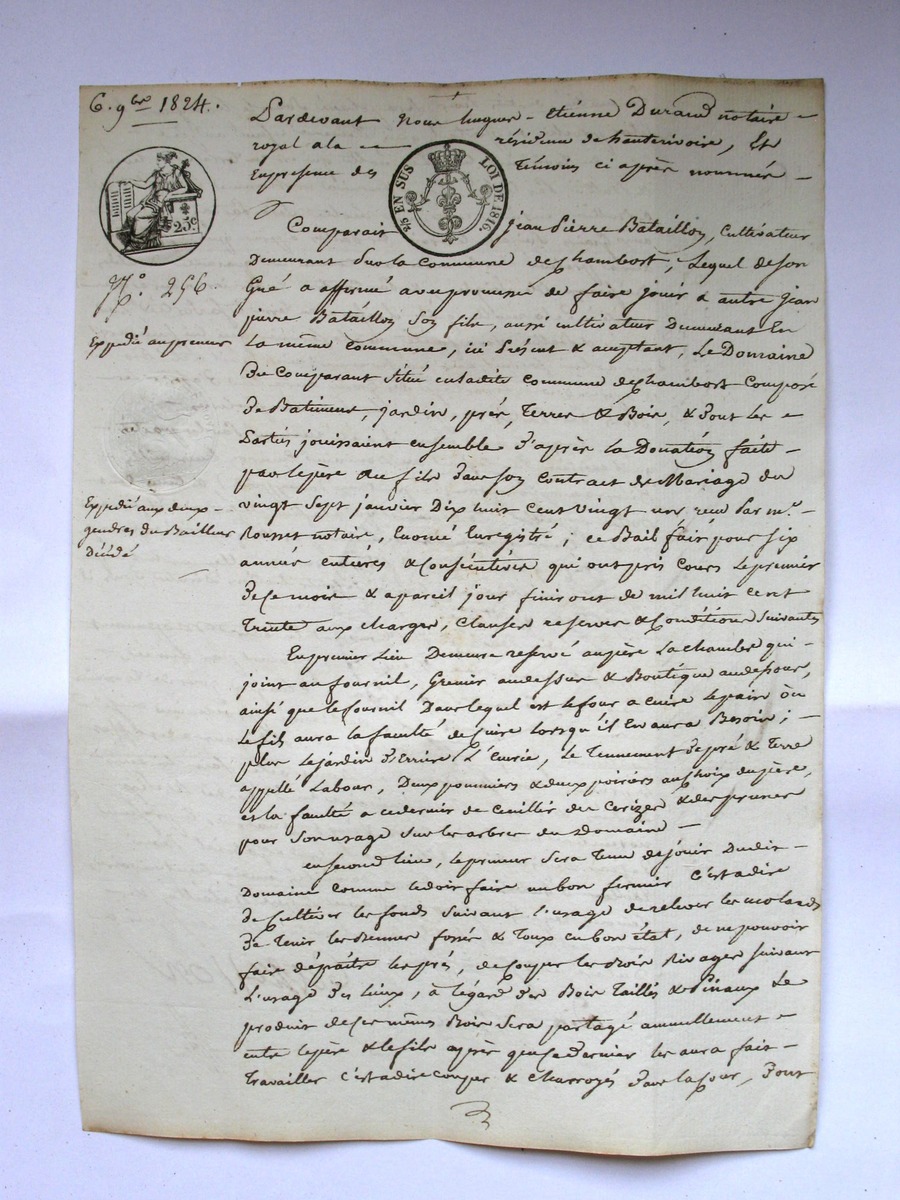 6. 9bre 1824.
25c
25 EN SUS LOI DE 1816.
No. 256.
Expédié au preneur
Expédié aux deux
gendres du Bailleur
Décédé
Pardevant Nous hugues - Etienne Durand notaire
royal a la résidence de hauterivoire, Et
En presence des Témoins ci après nommés
Comparait jean Pierre Bataillon, Cultivateur
Demeurant Sur la Commune de Chambost, Lequel de son
Gré a affermé avec promesse de faire jouir a autre jean
pierre Bataillon Son fils, aussi cultivateur Demeurant En
la même commune, ici Présent & acceptant, Le Domaine
Du Comparant Situé en ladite commune de Chambost Composé
De Batiments, jardin, prés, Terres & Bois, & dont les
Parties jouissaient ensemble D'après la Donation faite
par le père au fils dans son Contract de Mariage du
vingt Sept janvier Dix huit Cent vingt un reçu Par me.
Rousset notaire, Enoncé Enregistré; ce Bail fait pour six
années entières & Consécutives qui ont pris Cours le premier
de ce mois & a pareil jour finiront de mil huit cent
Trente aux charges, Clauses reserves & Conditions Suivantes
En premier Lieu Demeure reservé au père La chambre qui
joint au fournil, Grenier au dessus & Boutique au dessous,
ainsi que le fournil Dans lequel est le four a cuire le pain où
Le fils aura la faculté de cuire lorsqu'il En aura Besoin;
plus le jardin D'errière L'Ecurie, Le Tennement de pré & Terre
appellé Labour, Deux pommiers & deux poiriers au Choix du père,
et la faculté a ce dernier de Ceuillir des Cerizes & des prunes
pour Son usage Sur les arbres du Domaine
en second lieu, le preneur Sera Tenu de jouir Dudit
Domaine Comme le doit faire un bon fermier C'est a dire
de Cultiver les fonds Suivant l'usage de relever les molards
de Tenir les fossés & en bon état, de ne pouvoir
faire dépaitre les prés, de Couper les Bois Rivages Suivant
L'usage des Lieux, à l'égard des Bois Taillis & Pinaux Le
produit de ces mêmes Bois Sera partagé annuellement
entre le père & le fils après que ce Dernier les aura fait
Travailler c'est a dire couper & charroyés dans la Cour, Dont